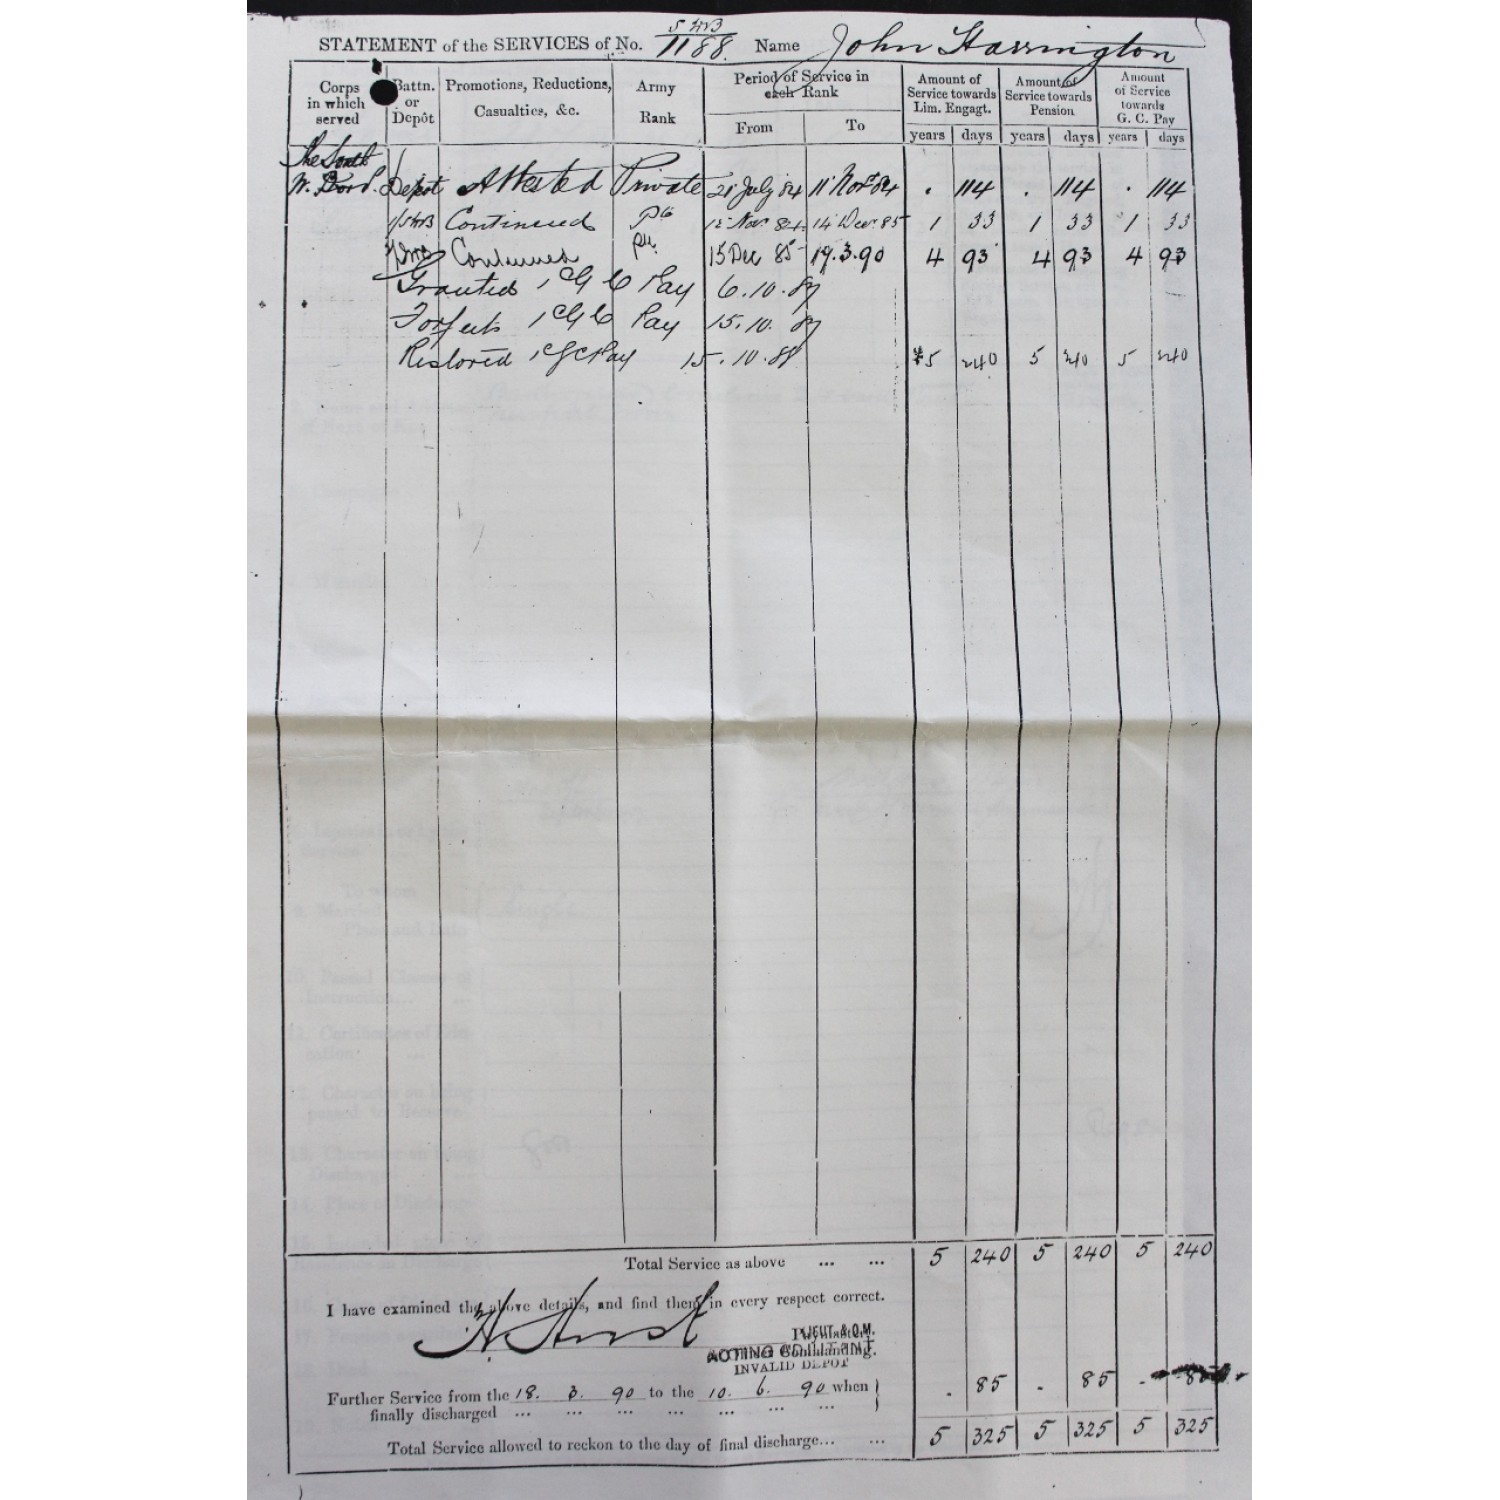 5 WB
STATEMENT of the SERVICES of No. 1188. Name John Harrington
Corps in which served Battn. or Depôt Promotions, Reductions, Casualties, &c. Army Rank Period of Service in each Rank From To Amount of Service towards Lim. Engagt. years days Amount of Service towards Pension years days Amount of Service towards G. C. Pay years days
The South
W. Bord. Depot Attested Private 21 July 84 11 Nov 84 . 114 . 114 . 114
Continued 12 Nov. 84 14 Decr 85 1 33 1 33 1 33
Continued 15 Dec 85 19.3.90 4 93 4 93 4 93
Granted 1 G C Pay 6.10.87
Forfeits 1 G C Pay 15.10.87
Restored 1 G C Pay 15.10.88 5 240 5 240 5 240
Total Service as above ... ... 5 240 5 240 5 240
I have examined the above details, and find them in every respect correct.
LIEUT. & Q.M.
ACTING
INVALID DEPOT
Further Service from the 18. 3. 90 to the 10. 6. 90 when . 85 . 85 .
finally discharged ... ... ... ... ... ... ...
Total Service allowed to reckon to the day of final discharge... ... 5 325 5 325 5 325